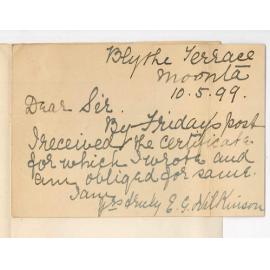 Blythe Terrace
Moonta
10.5.99.
Dear Sir.
By Fridays post
I received the certificate
for which I wrote and
am obliged for same.
I am
yrs truly E. G. Wilkinson